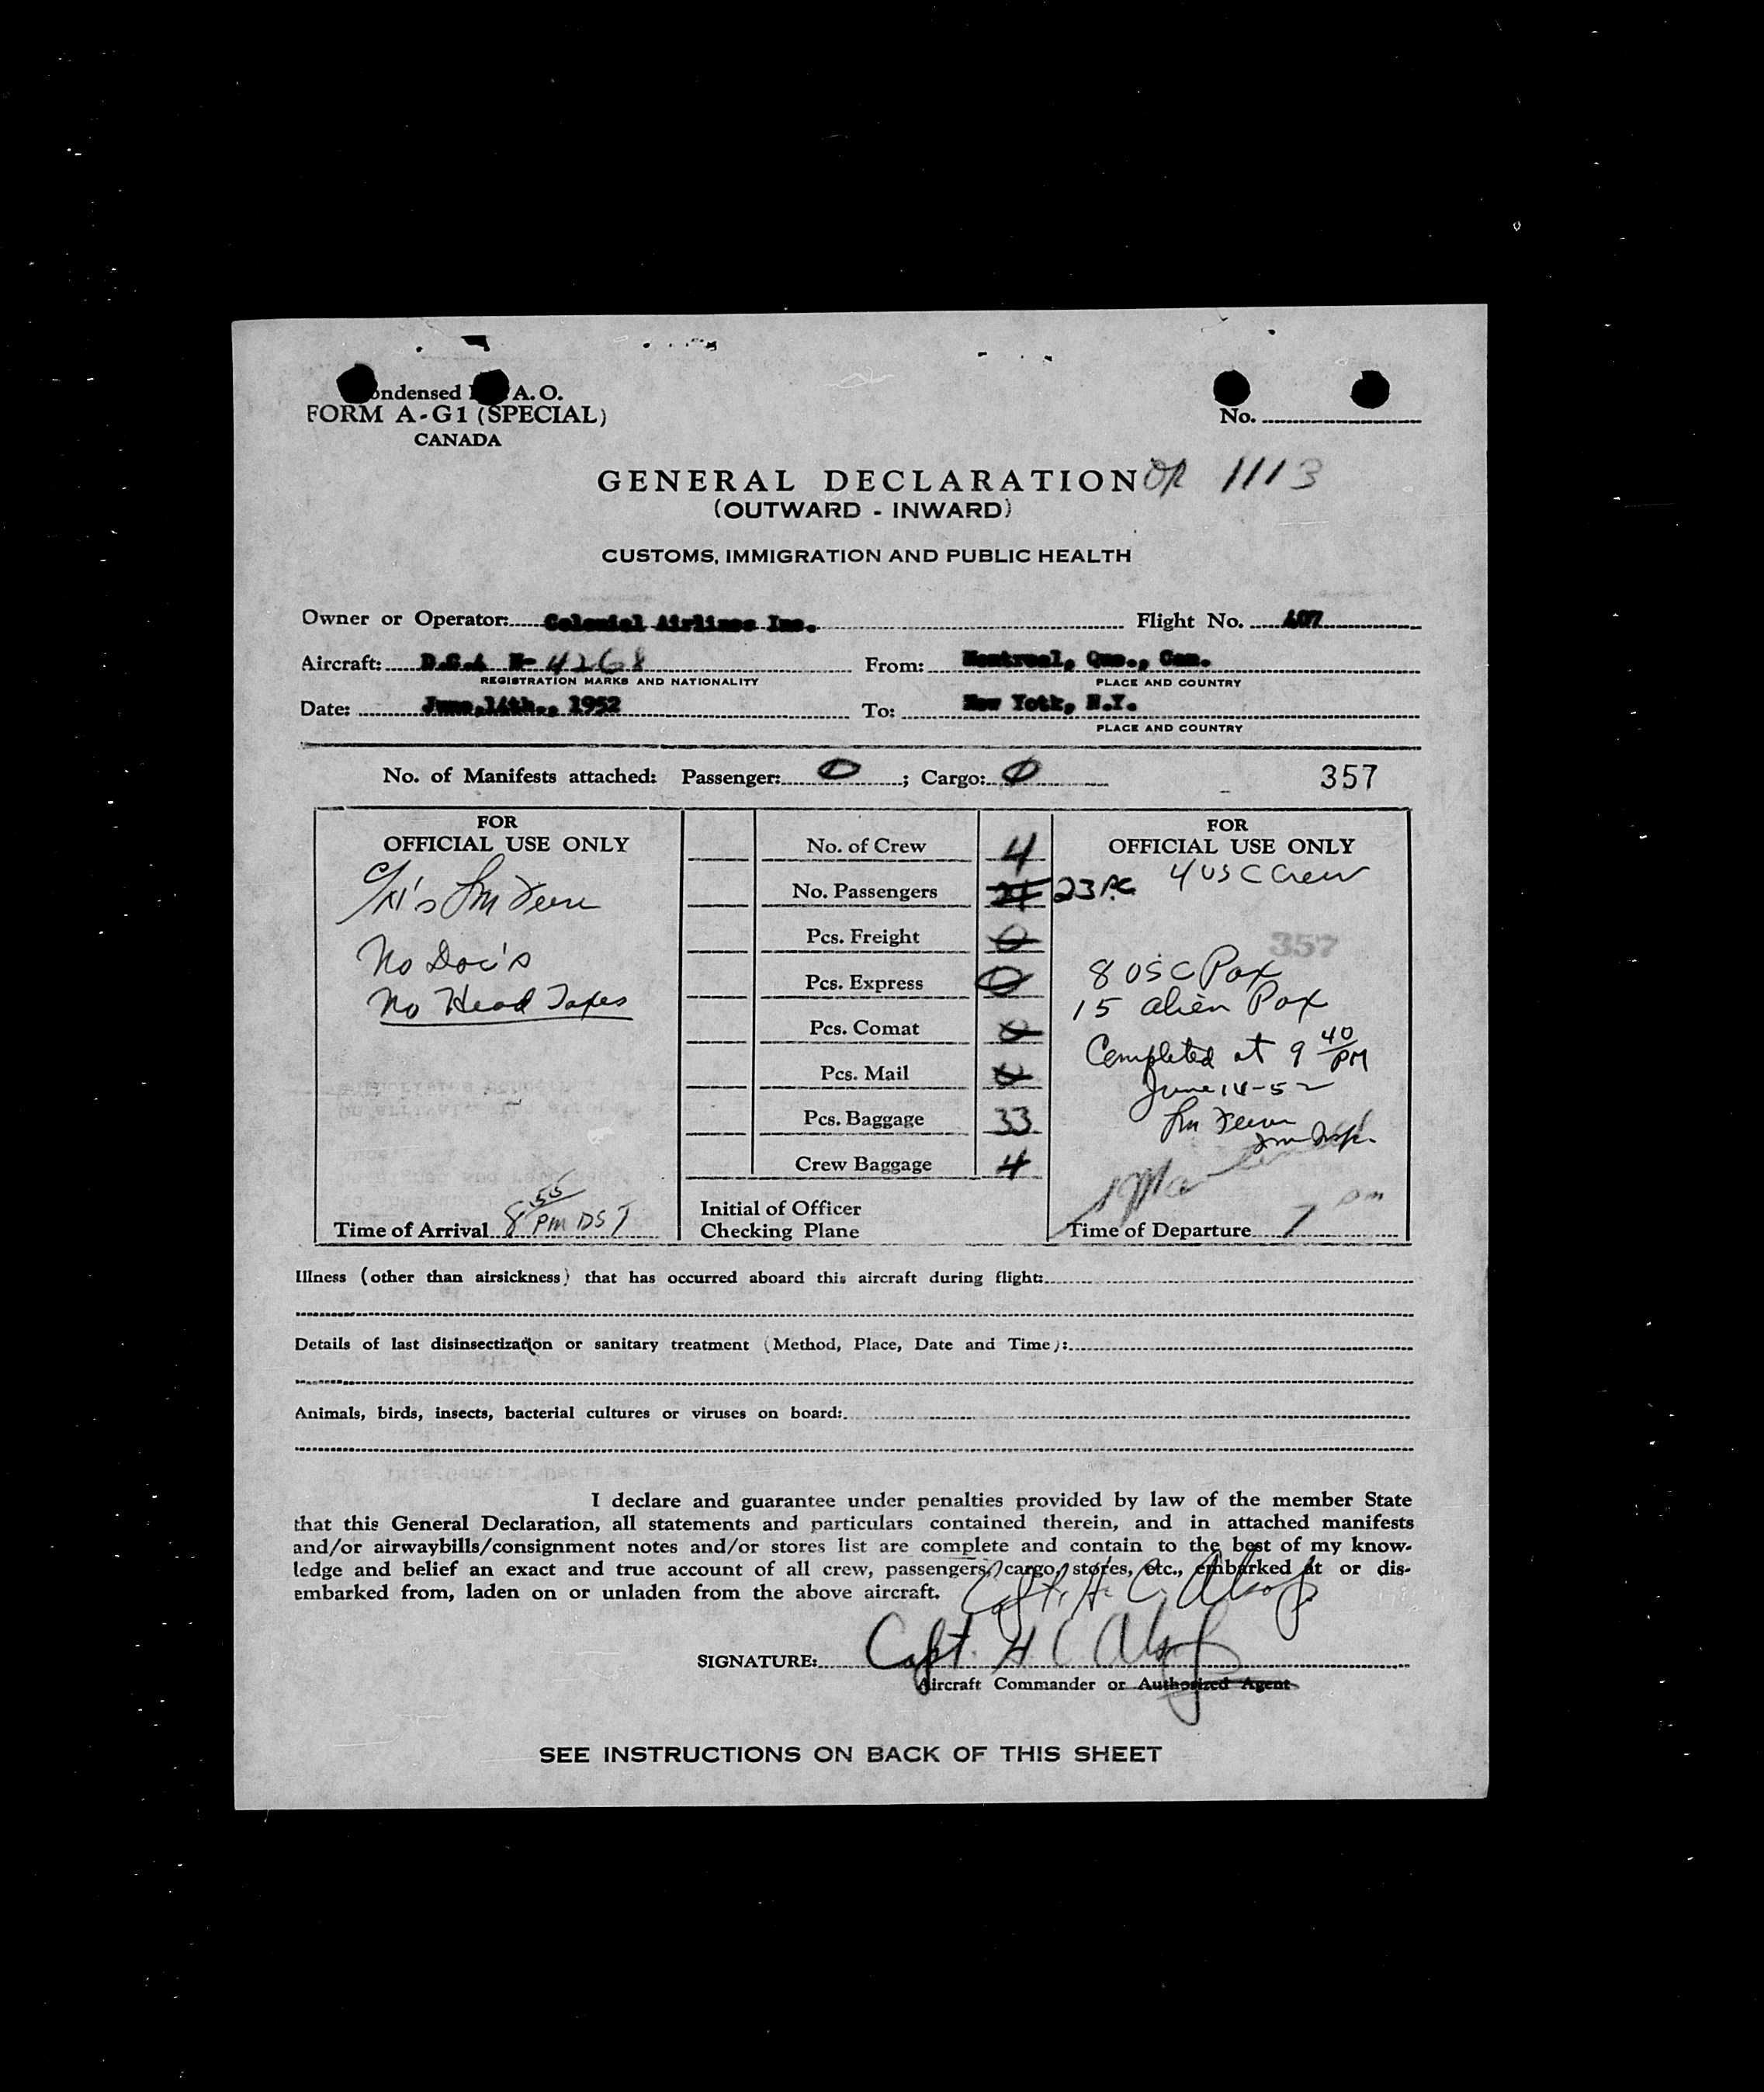 ondensed A. O.
FORM A-G1 (SPECIAL)
CANADA
No.
GENERAL DECLARATION OR 1113
(OUTWARD - INWARD)
CUSTOMS, IMMIGRATION AND PUBLIC HEALTH
Owner or Operator: Colonial Airlines Inc. Flight No. 407
Aircraft: D.C.4 N- 4268 From: Montreal, Que., Can.
REGISTRATION MARKS AND NATIONALITY PLACE AND COUNTRY
Date: June,14th., 1952 To: New Yotk, N.Y.
PLACE AND COUNTRY
No. of Manifests attached: Passenger: 0 ; Cargo: 0 357
FOR
OFFICIAL USE ONLY
No Doc's
No Head Taxes
Time of Arrival 8 55 PM DST
No. of Crew 4
No. Passengers 23
Pcs. Freight 0
Pcs. Express 0
Pcs. Comat 0
Pcs. Mail 0
Pcs. Baggage 33
Crew Baggage 4
Initial of Officer
Checking Plane
FOR
OFFICIAL USE ONLY
4 USC Crew
357
8 USC Pax
15 alien Pax
Completed at 9 40 PM
June 14-52
Time of Departure 7 pm
Illness (other than airsickness) that has occurred aboard this aircraft during flight:
Details of last disinsectization or sanitary treatment (Method, Place, Date and Time):
Animals, birds, insects, bacterial cultures or viruses on board:
I declare and guarantee under penalties provided by law of the member State
that this General Declaration, all statements and particulars contained therein, and in attached manifests
and/or airwaybills/consignment notes and/or stores list are complete and contain to the best of my know-
ledge and belief an exact and true account of all crew, passengers, cargo, stores, etc., embarked at or dis-
embarked from, laden on or unladen from the above aircraft.
Capt. H. C. Alsop
SIGNATURE: Capt. H C Alsop
Aircraft Commander or Authorized Agent
SEE INSTRUCTIONS ON BACK OF THIS SHEET